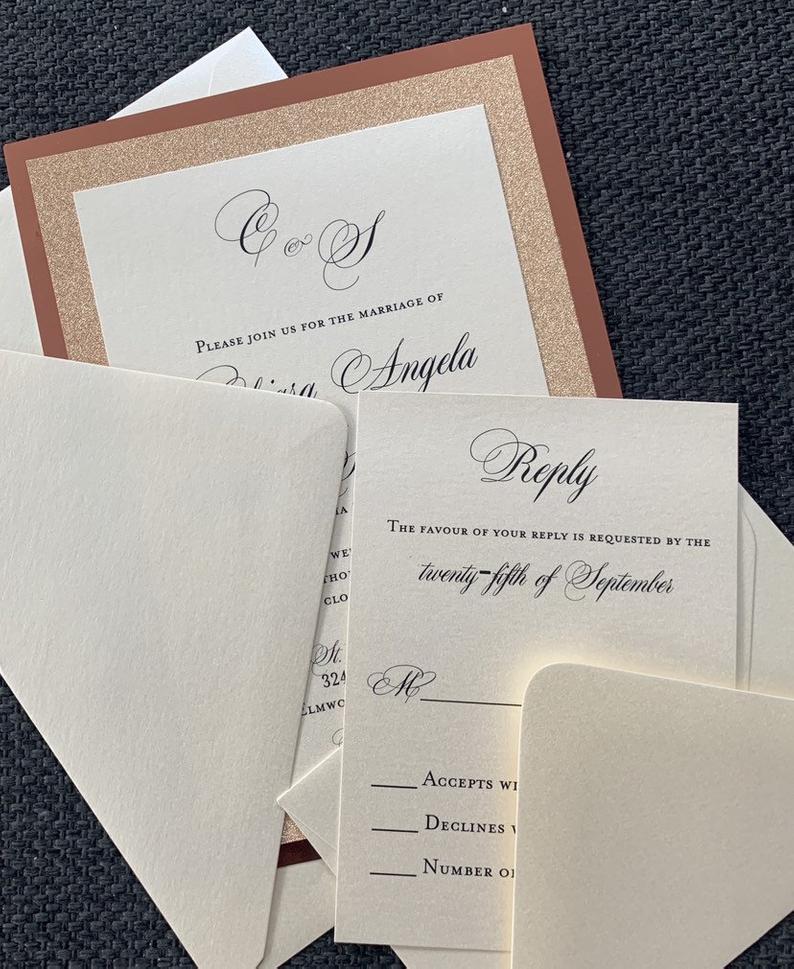 C & S
Please join us for the marriage of
Angela
St.
324
Reply
The favour of your reply is requested by the
twenty-fifth of September
M
Accepts
Declines
Number